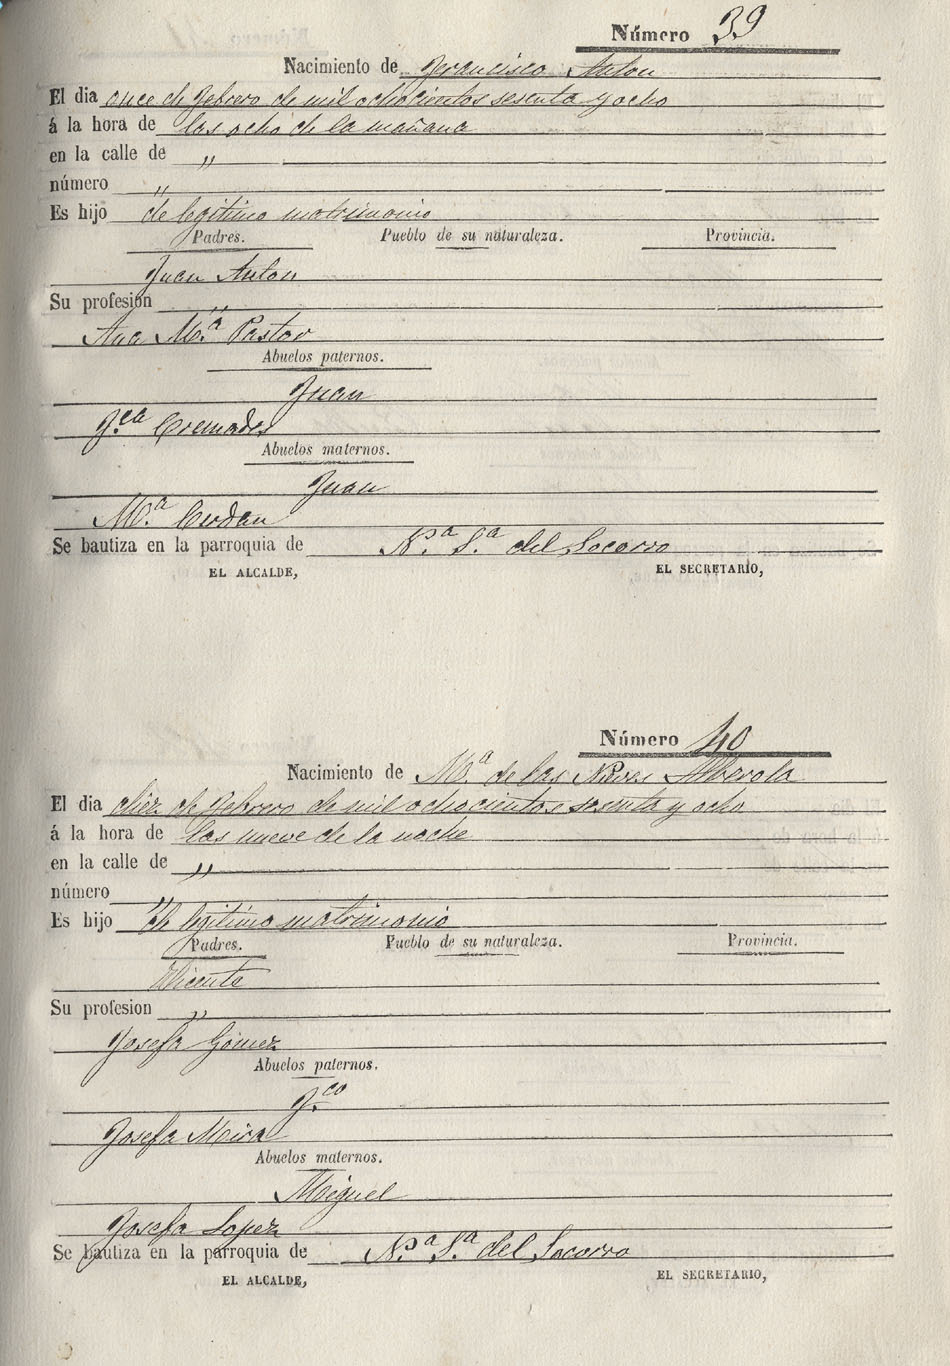 Número 39
Nacimiento de Francisco Anton
El dia once de Febrero de mil ochocientos sesenta y ocho
á la hora de las ocho de la mañana
en la calle de „
número „
Es hijo de legitimo matrimonio
Padres. Pueblo de su naturaleza. Provincia.
Juan Anton
Su profesion „
Ana M.ª Pastor
Abuelos paternos.
Juan
F.ca Cremades
Abuelos maternos.
Juan
M.ª Cerdan
Se bautiza en la parroquia de N.ª S.ª del Socorro
EL ALCALDE, EL SECRETARIO,
Número 40
Nacimiento de M.ª de las Nieves Alberola
El dia diez de Febrero de mil ochocientos sesenta y ocho
á la hora de las nueve de la noche
en la calle de „
número „
Es hijo de legitimo matrimonio
Padres. Pueblo de su naturaleza. Provincia.
Vicente
Su profesion „
Josefa Gomez
Abuelos paternos.
F.co
Josefa Mira
Abuelos maternos.
Miguel
Josefa Lopez
Se bautiza en la parroquia de N.ª S.ª del Socorro
EL ALCALDE, EL SECRETARIO,